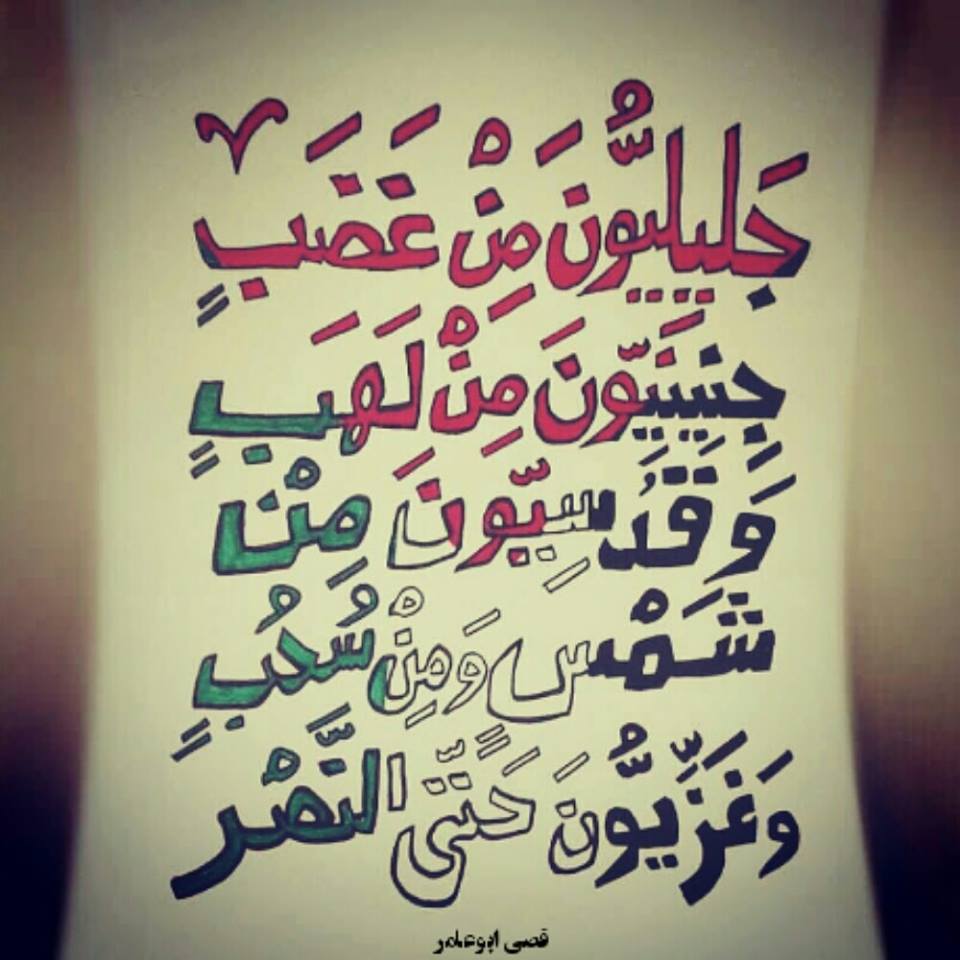 جَلِيلِيُّونَ مِنْ غَضَبٍ
جِنِينِيّونَ مِنْ لَهَبٍ
وَقُدْسِيّونَ مِنْ
شَمْسٍ وَمِنْ سُحُبٍ
وَغَزِّيُّونَ حَتّى النَّصْر
قصي ابوعامر